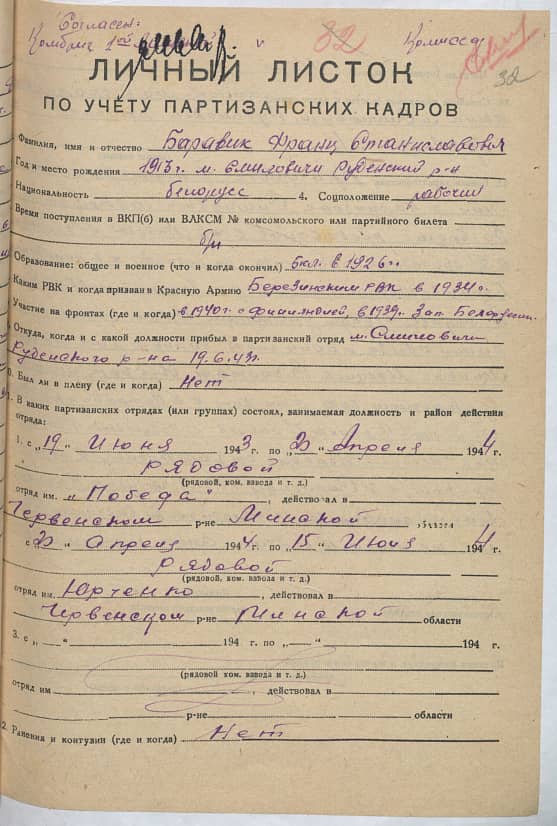 Согласен:
Комбриг 1ой
82
Комиссар
32
ЛИЧНЫЙ ЛИСТОК
ПО УЧЕТУ ПАРТИЗАНСКИХ КАДРОВ
Фамилия, имя и отчество Баравик Франц Станиславович
Год и место рождения 1913 г. м. Смиловичи Руденский р-н
Национальность белорусс 4. Соцположение рабочий
Время поступления в ВКП(б) или ВЛКСМ № комсомольского или партийного билета
б/п
Образование: общее и военное (что и когда окончил) 5 кл. в 1926 г.
Каким РВК и когда призван в Красную Армию Березинским РВК в 1934 г.
Участие на фронтах (где и когда) в 1940 г. с финляндией, в 1939 г. Зап. Белоруссии
Откуда, когда и с какой должности прибыл в партизанский отряд м. Смиловичи
Руденского р-на 19.6.43 г.
0. Был ли в плену (где и когда) Нет
1. В каких партизанских отрядах (или группах) состоял, занимаемая должность и район действия
отряда:
1. с „19" Июня 1943 г. по „20" Апреля 1944 г.
рядовой
(рядовой, ком. взвода и т. д.)
отряд им. „Победа", действовал в
Червенском р-не Минской области
с „20" Апреля 1944 г. по „15" Июля 1944 г.
рядовой
(рядовой, ком. взвода и т. д.)
отряд им. Юрченко, действовал в
Червенском р-не Минской области
3. с „ " 194 г. по „ " 194 г.
(рядовой ком. взвода и т. д.)
отряд им , действовал в
р-не области
2. Ранения и контузии (где и когда) Нет